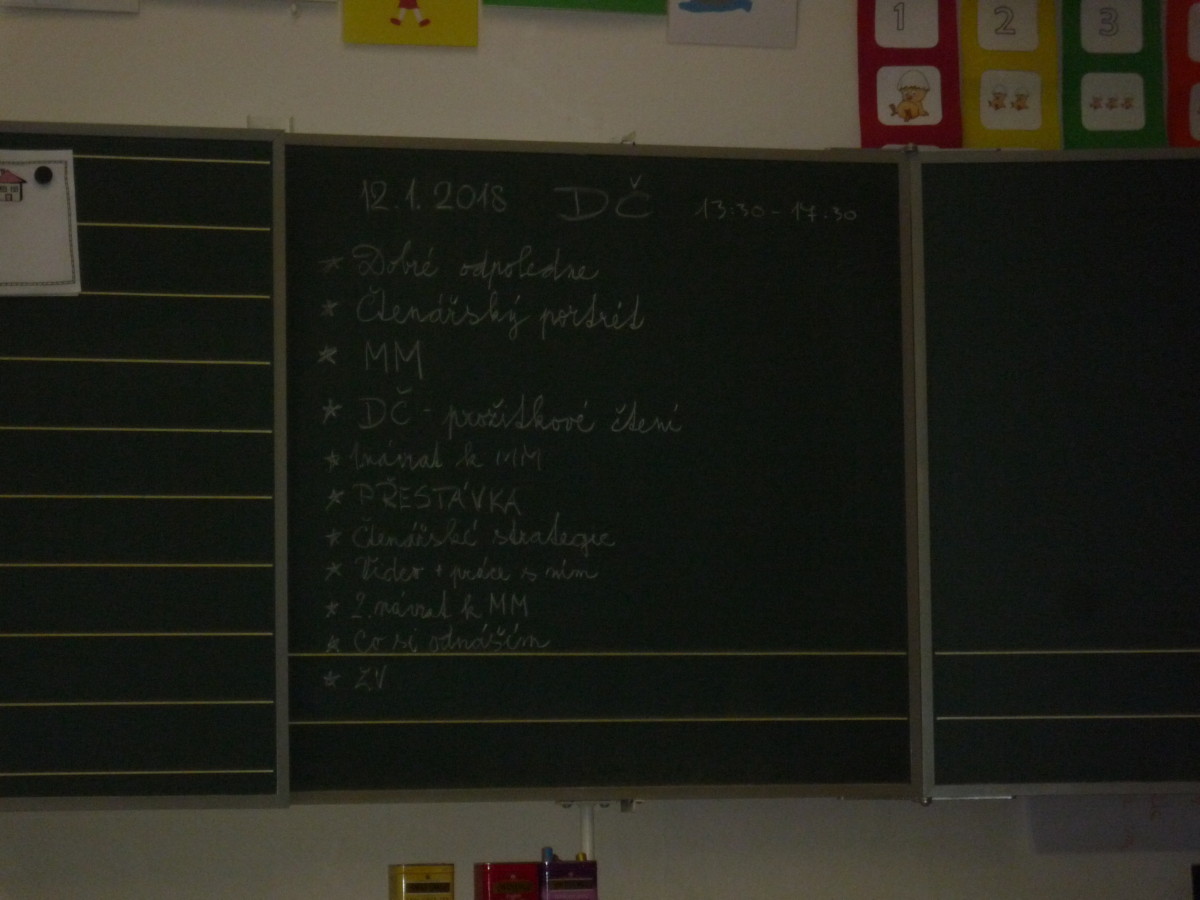 1 2 3
12.1.2018 DČ 13:30-17.30
* Dobré odpoledne
* Čtenářský portrét
* MM
* DČ - prožitkové čtení
* 1.návrat k MM
* PŘESTÁVKA
* Čtenářské strategie
* Video + práce s ním
* 2.návrat k MM
* Co si odnáším
* ZV